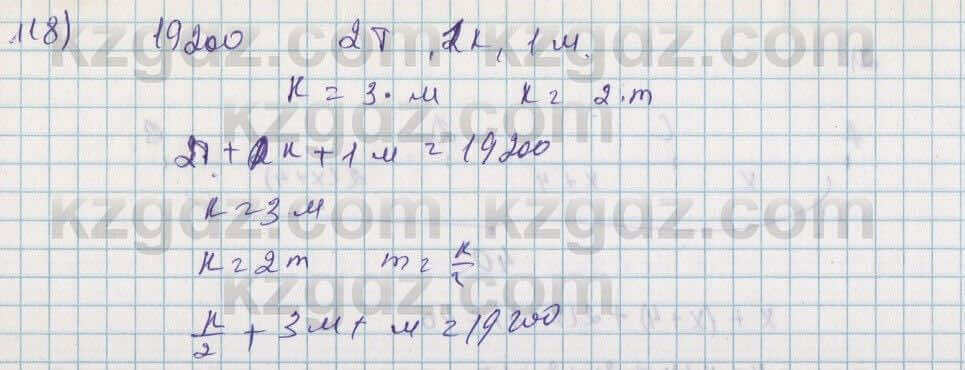 118) 19200 2т, 2к, 1м.
к = 3·м к = 2·т
2т + 2к + 1м = 19200
к = 3м
к = 2т т = к/2
к/2 + 3м + м = 19200
kzgdz.com
kzgdz.com
kzgdz.com
kzgdz.com